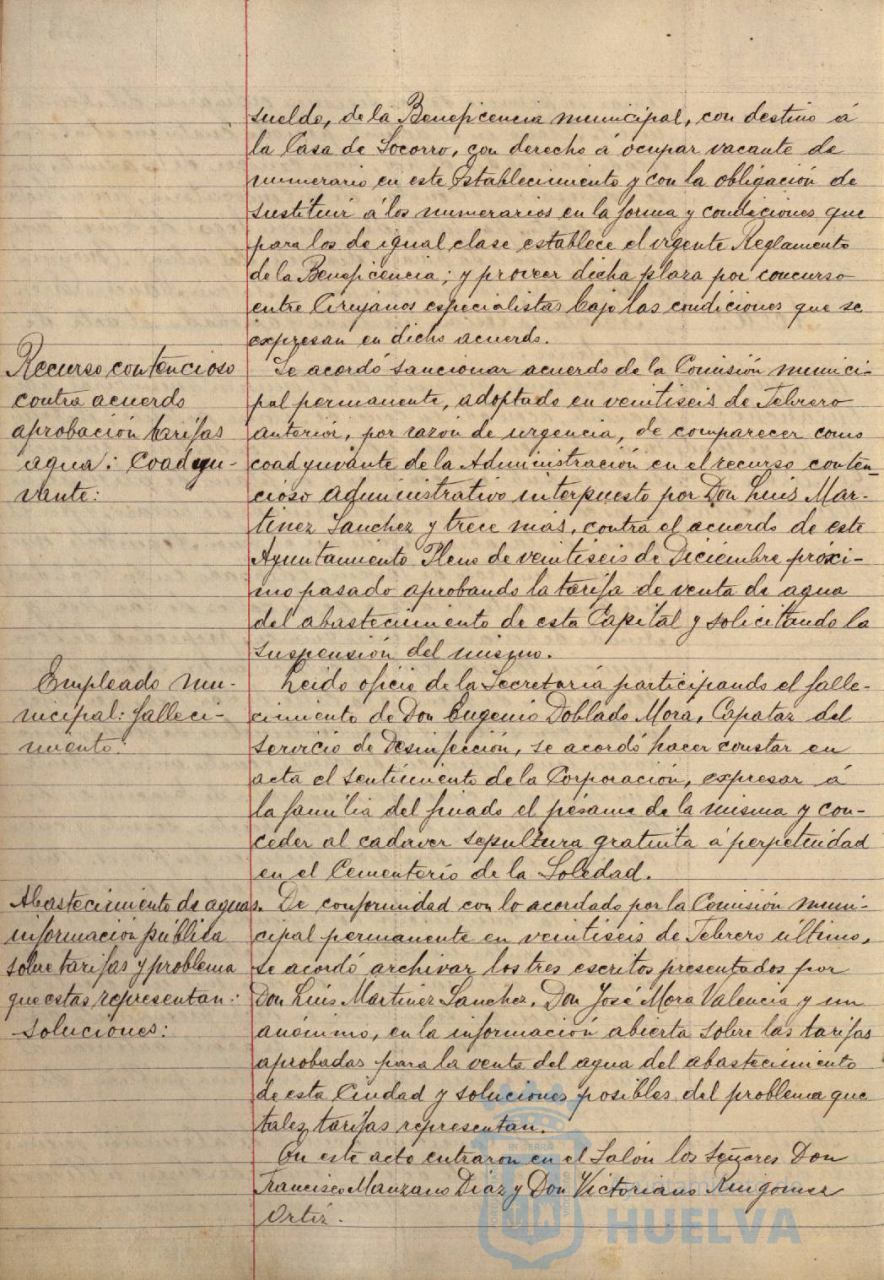 sueldo, de la Beneficencia municipal, con destino á
la Casa de Socorro, con derecho á ocupar vacante de
numerario en este Establecimiento y con la obligación de
sustituir á los numerarios en la forma y condiciones que
para los de igual clase establece el vigente Reglamento
de la Beneficencia; y proveer dicha plaza por concurso
entre Cirujanos especialistas bajo las condiciones que se
expresan en dicho acuerdo.
Recurso contencioso
contra acuerdo
aprobación tarifas
agua: Coadyu-
vante:
Se acordó sancionar acuerdo de la Comisión munici-
pal permanente, adoptado en veintiseis de Febrero
anterior, por razón de urgencia, de comparecer como
coadyuvante de la Administración en el recurso conten-
cioso administrativo interpuesto por Don Luis Mar-
tinez Sanchez y trece más, contra el acuerdo de este
Ayuntamiento Pleno de veintiseis de Diciembre próxi-
mo pasado aprobando la tarifa de venta de agua
del abastecimiento de esta Capital y solicitando la
suspensión del mismo.
Empleado mu-
nicipal: falleci-
miento:
Leido oficio de la Secretaría participando el falle-
cimiento de Don Eugenio Doblado Mora, Capataz del
servicio de Desinfección, se acordó hacer constar en
acta el sentimiento de la Corporación, expresar á
la familia del finado el pésame de la misma y con-
ceder al cadaver sepultura gratuita á perpetuidad
en el Cementerio de la Soledad.
Abastecimiento de aguas.
información pública
sobre tarifas y problema
que estas representan:
soluciones:
De conformidad con lo acordado por la Comisión muni-
cipal permanente en veintiseis de Febrero último,
se acordó archivar los tres escritos presentados por
Don Luis Martinez Sanchez, Don José Mora Valencia y un
anónimo, en la información abierta sobre las tarifas
aprobadas para la venta del agua del abastecimiento
de esta Ciudad y soluciones posibles del problema que
tales tarifas representan.
En este acto entraron en el Salón los señores Don
Francisco Manzano Diaz y Don Victoriano
Ortiz.
HUELVA